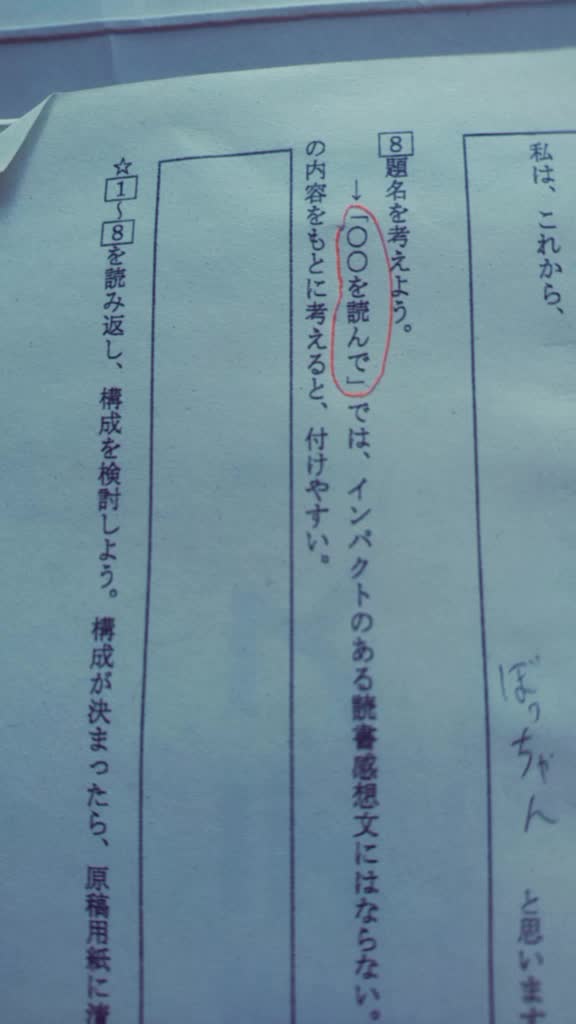 私は、これから、
ぼっちゃん と思います
8 題名を考えよう。
→「○○を読んで」では、インパクトのある読書感想文にはならない。
の内容をもとに考えると、付けやすい。
☆1~8を読み返し、構成を検討しよう。構成が決まったら、原稿用紙に清